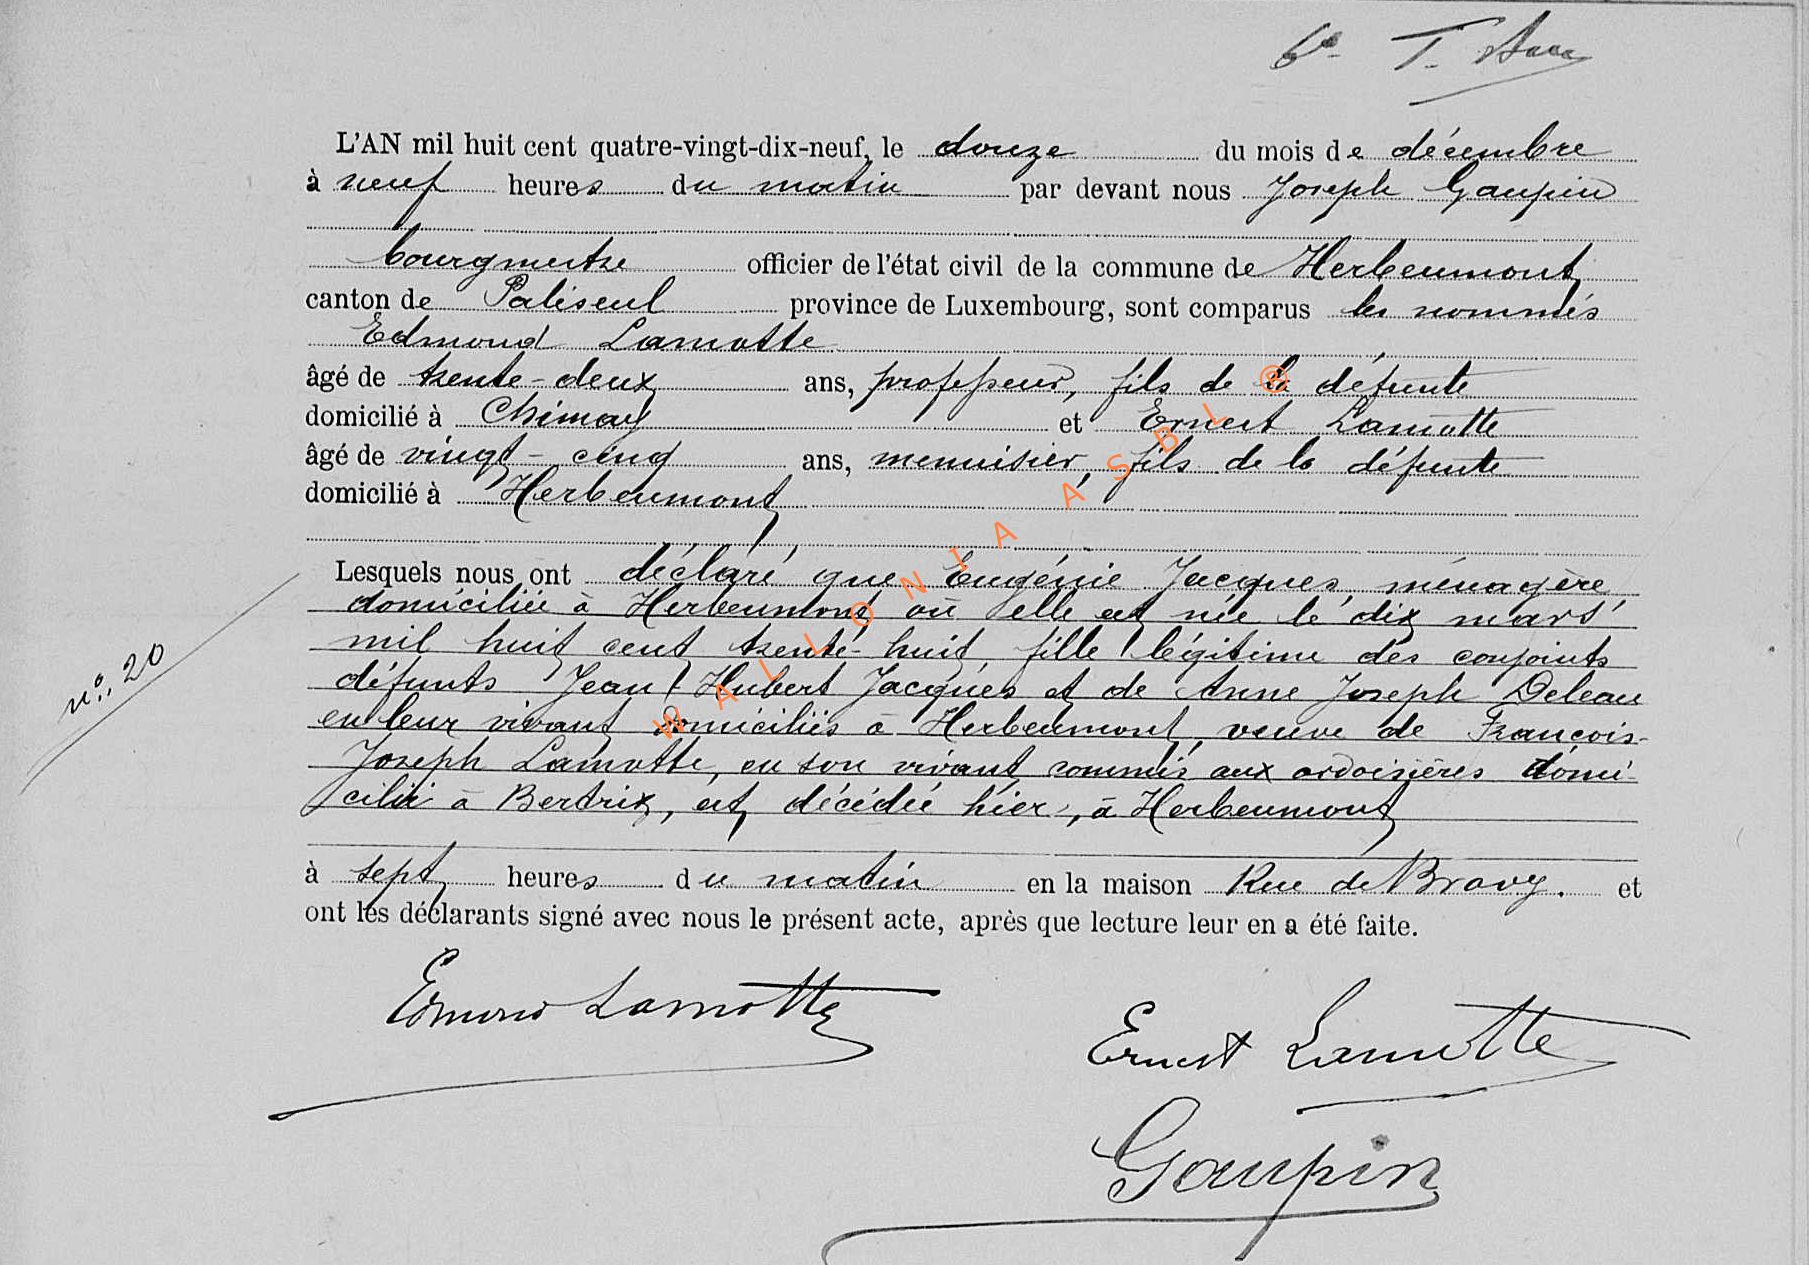 L'AN mil huit cent quatre-vingt-dix-neuf, le douze du mois de décembre
à neuf heures du matin par devant nous Joseph Gaupin
bourgmestre officier de l'état civil de la commune de Herbeumont
canton de Paliseul province de Luxembourg, sont comparus les nommés
Edmond Lamotte
âgé de trente-deux ans, professeur, fils de la défunte
domicilié à Chimay et Ernest Lamotte
âgé de vingt-cinq ans, menuisier, fils de la défunte
domicilié à Herbeumont
Lesquels nous ont déclaré que Eugénie Jacques, ménagère
domiciliée à Herbeumont où elle est née le dix mars
mil huit cent trente-huit, fille légitime des conjoints
défunts Jean Hubert Jacques et de Anne Joseph Deleau
en leur vivant domiciliés à Herbeumont, veuve de François-
Joseph Lamotte, en son vivant commis aux ardoisières domi-
cilié à Bertrix, est décédée hier, à Herbeumont
à sept heures du matin en la maison Rue de Bravy. et
ont les déclarants signé avec nous le présent acte, après que lecture leur en a été faite.
n°. 20
Edmond Lamotte
Ernest Lamotte
Gaupin
WALLONIA ASBL ®